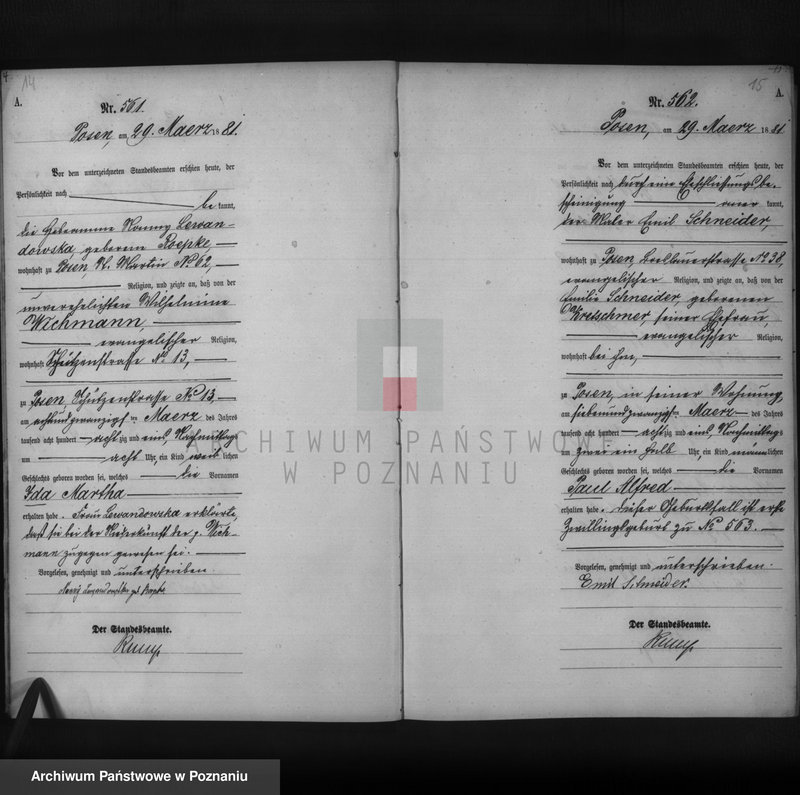 14
A.
Nr. 561.
Posen, am 29. Maerz 1881.
Vor dem unterzeichneten Standesbeamten erschien heute, der
Persönlichkeit nach
be kannt,
die Hebamme Lewan-
dowska, geborene Roepke,
wohnhaft zu Posen St. Martin No 62,
Religion, und zeigte an, daß von der
unverehelichten Wilhelmine
Wichmann,
evangelischer Religion,
wohnhaft Schützenstrasse No 13,
zu Posen, Schützenstrasse No 13,
am achtundzwanzigsten Maerz des Jahres
tausend acht hundert achtzig und eins, Nachmittags
um acht Uhr, ein Kind weiblichen
Geschlechts geboren worden sei, welches die Vornamen
Ida Martha
erhalten habe. Frau Lewandowska erklärte,
daß sie bei der Niederkunft der p. Wich-
mann zugegen gewesen sei.
Vorgelesen, genehmigt und unterschrieben.
Der Standesbeamte.
15
A.
Nr. 562.
Posen, am 29. Maerz 1881.
Vor dem unterzeichneten Standesbeamten erschien heute, der
Persönlichkeit nach durch eine Eheschließungsbe-
scheinigung aner kannt,
der Maler Emil Schneider,
wohnhaft zu Posen Breslauerstrasse No 38,
evangelischer Religion, und zeigte an, daß von der
Emilie Schneider, geborenen
Kretschmer, seiner Ehefrau,
evangelischer Religion,
wohnhaft bei ihm,
zu Posen, in seiner Wohnung,
am siebenundzwanzigsten Maerz des Jahres
tausend acht hundert achtzig und eins, Nachmittags
um zwei ein halb Uhr, ein Kind männlichen
Geschlechts geboren worden sei, welches die Vornamen
Paul Alfred
erhalten habe. Dieser Geburtsfall ist erste
Zwillingsgeburt zu No 563.
Vorgelesen, genehmigt und unterschrieben.
Emil Schneider.
Der Standesbeamte.
ARCHIWUM PAŃSTWOWE
W POZNANIU
Archiwum Państwowe w Poznaniu